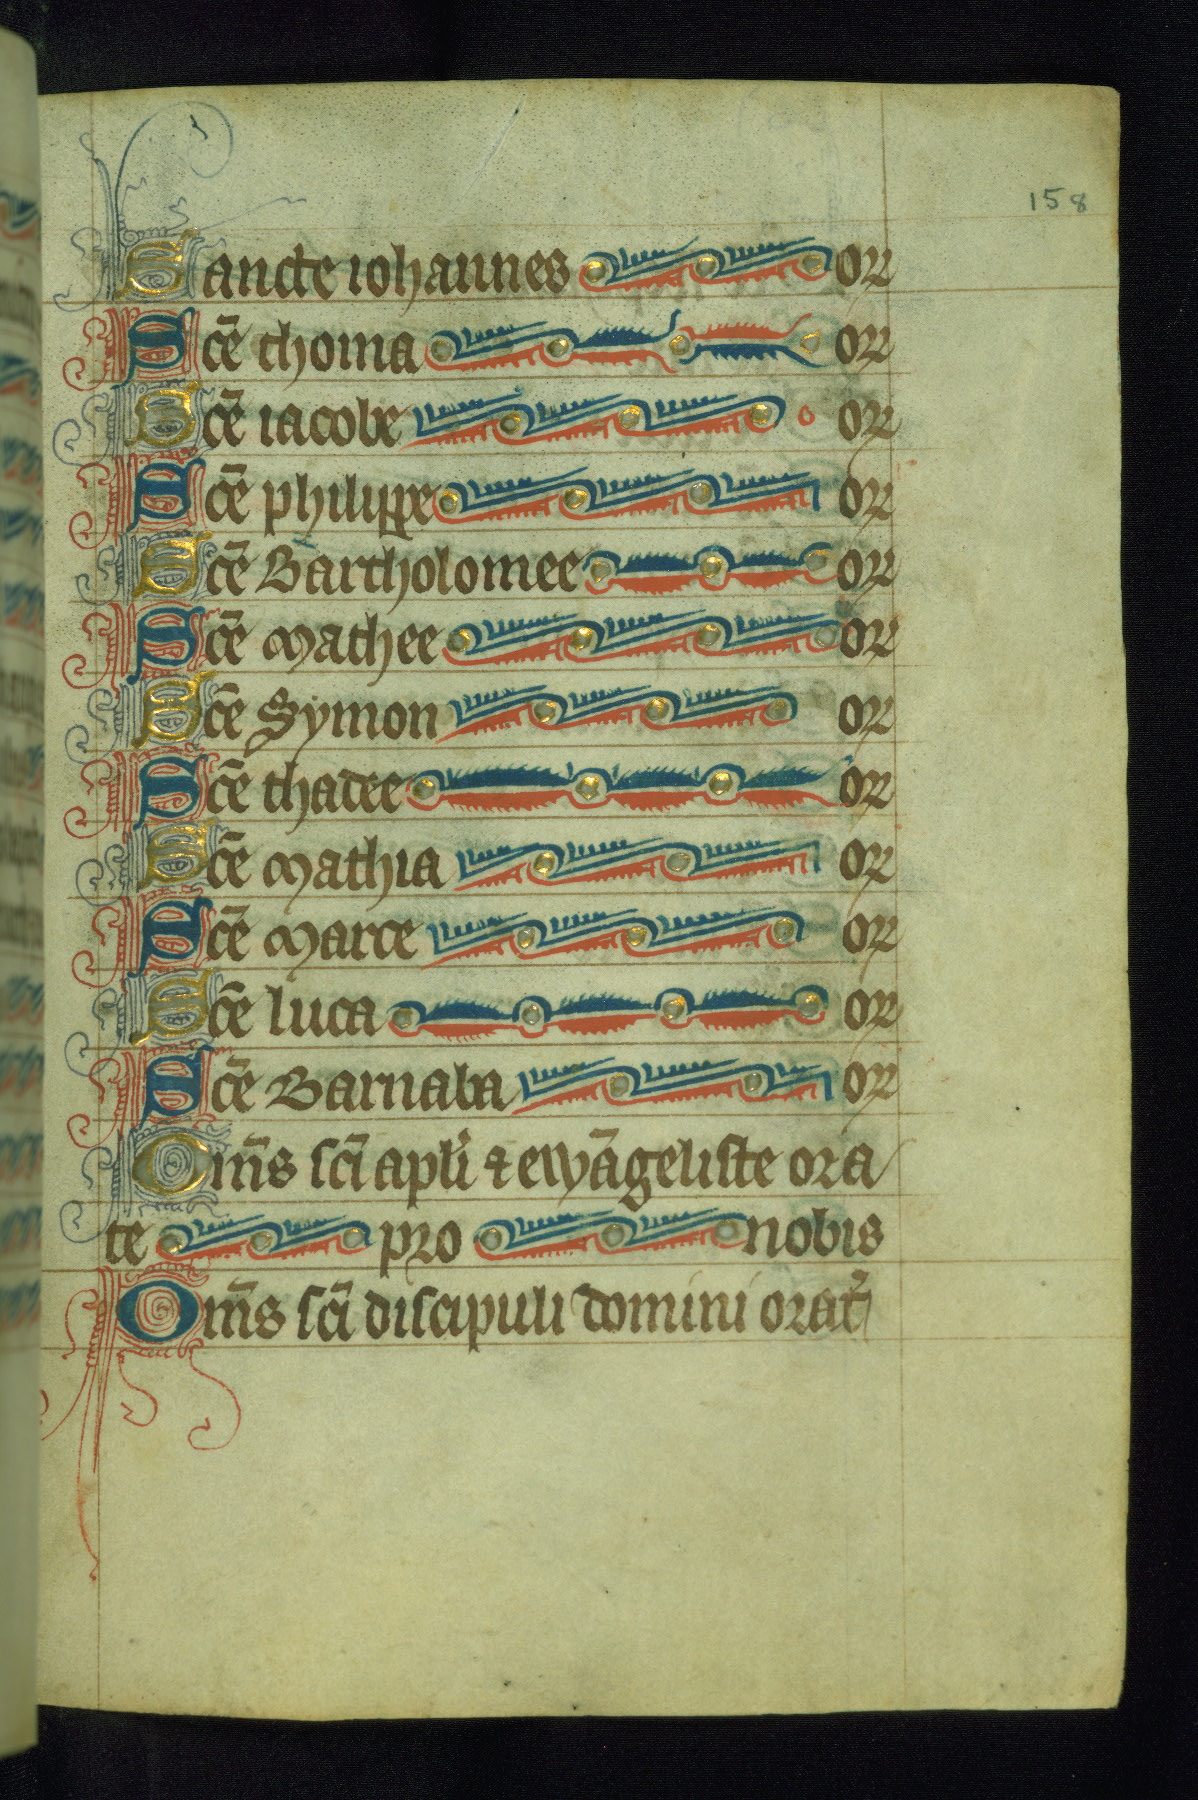 158
Sancte iohannes or
Scē thoma or
Scē iacobe or
Scē philippe or
Scē Bartholomee or
Scē Mathee or
Scē Symon or
Scē thadee or
Scē Mathia or
Scē Marce or
Scē luca or
Scē Barnaba or
Om̄s sc̄i apl̄i ⁊ ewāgeliste ora
te pro nobis
Om̄s sc̄i discipuli domini orat̄